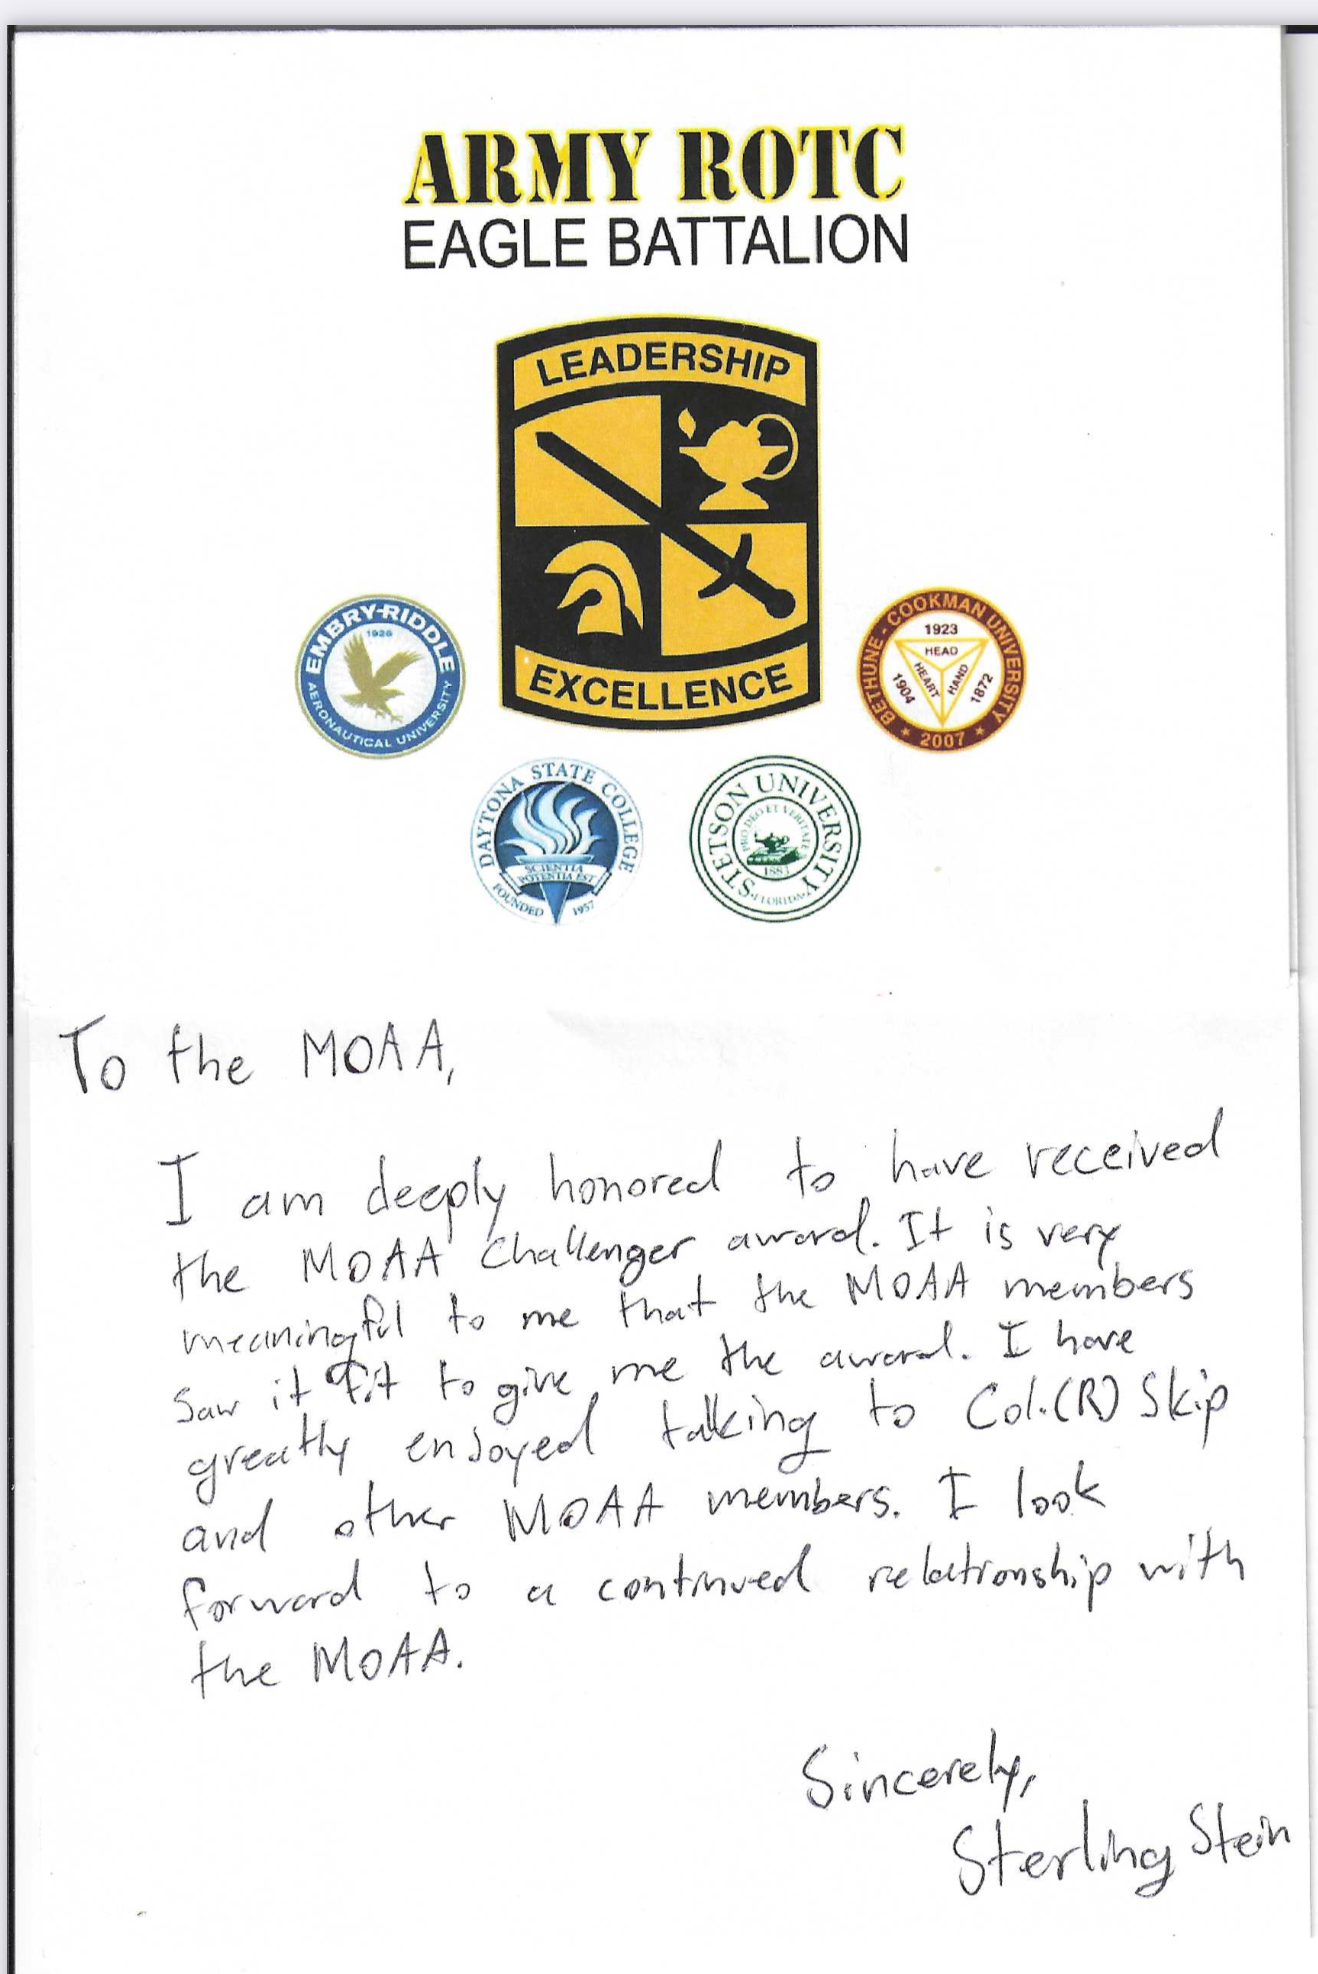 ARMY ROTC
EAGLE BATTALION
LEADERSHIP
EXCELLENCE
EMBRY-RIDDLE
1926
AERONAUTICAL UNIVERSITY
BETHUNE - COOKMAN UNIVERSITY
1923
HEAD
HEART
HAND
1904
1872
2007
DAYTONA STATE COLLEGE
SCIENTIA
POTENTIA EST
FOUNDED 1957
STETSON UNIVERSITY
PRO DEO ET VERITATE
1883
FLORIDA
To the MOAA,
I am deeply honored to have received
the MOAA Challenger award. It is very
meaningful to me that the MOAA members
saw it fit to give me the award. I have
greatly enjoyed talking to Col.(R) Skip
and other MOAA members. I look
forward to a continued relationship with
the MOAA.
Sincerely,
Sterling Stein